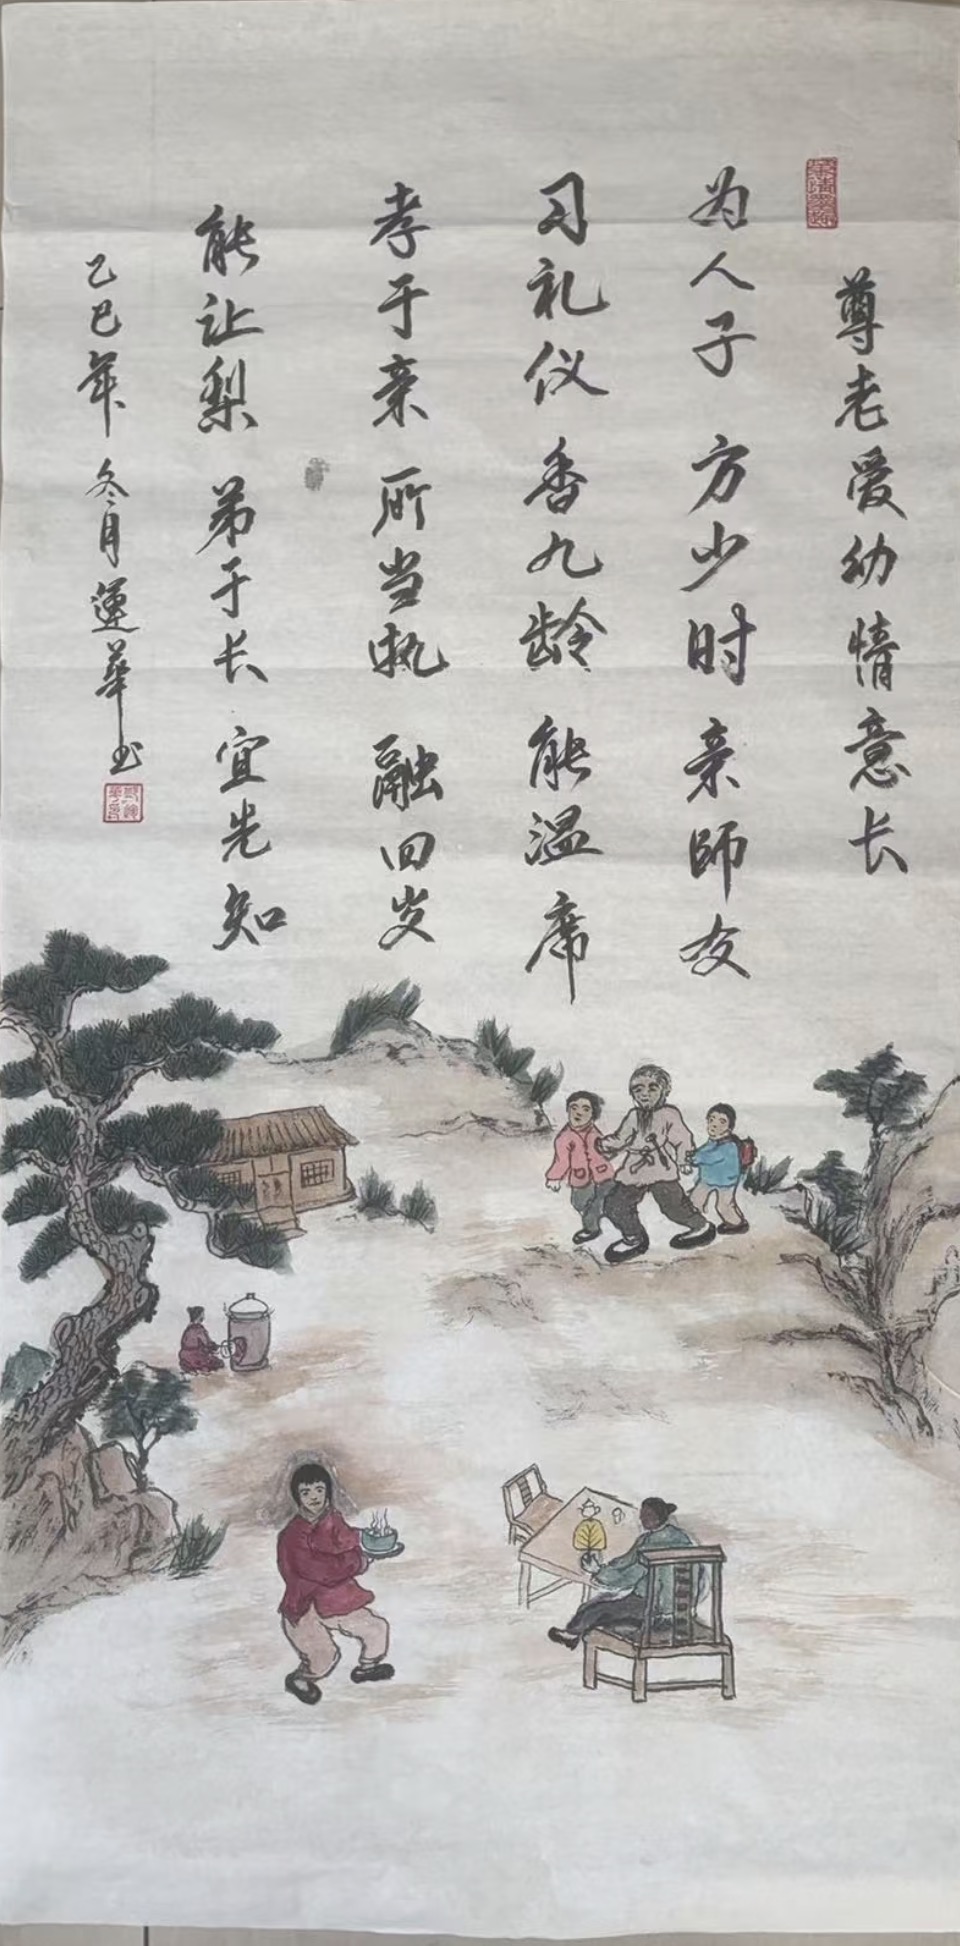 尊老爱幼情意长
为人子 方少时 亲師友
习礼仪 香九龄 能温席
孝于亲 所当执 融四岁
能让梨 弟于长 宜先知
乙巳年 冬月 蓮華书